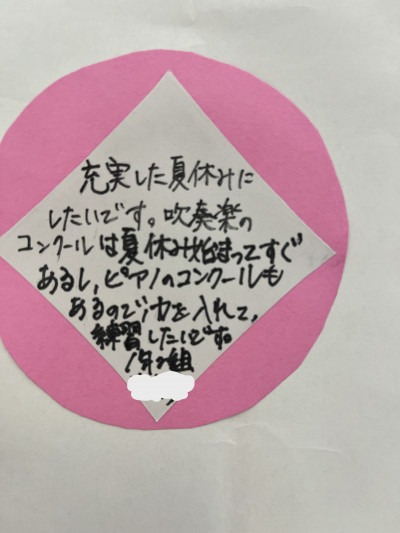 充実した夏休みに
したいです。吹奏楽の
コンクールは夏休み始まってすぐ
あるし、ピアノのコンクールも
あるので力を入れて、
練習したいです。
1年2組